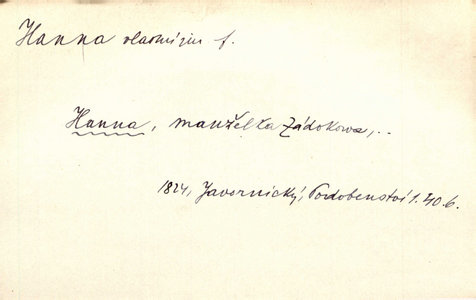 Hanna vlastní jm f.
Hanna, manželka Zádokowa,..
1824, Javornický, Podobenství 1.40.6.